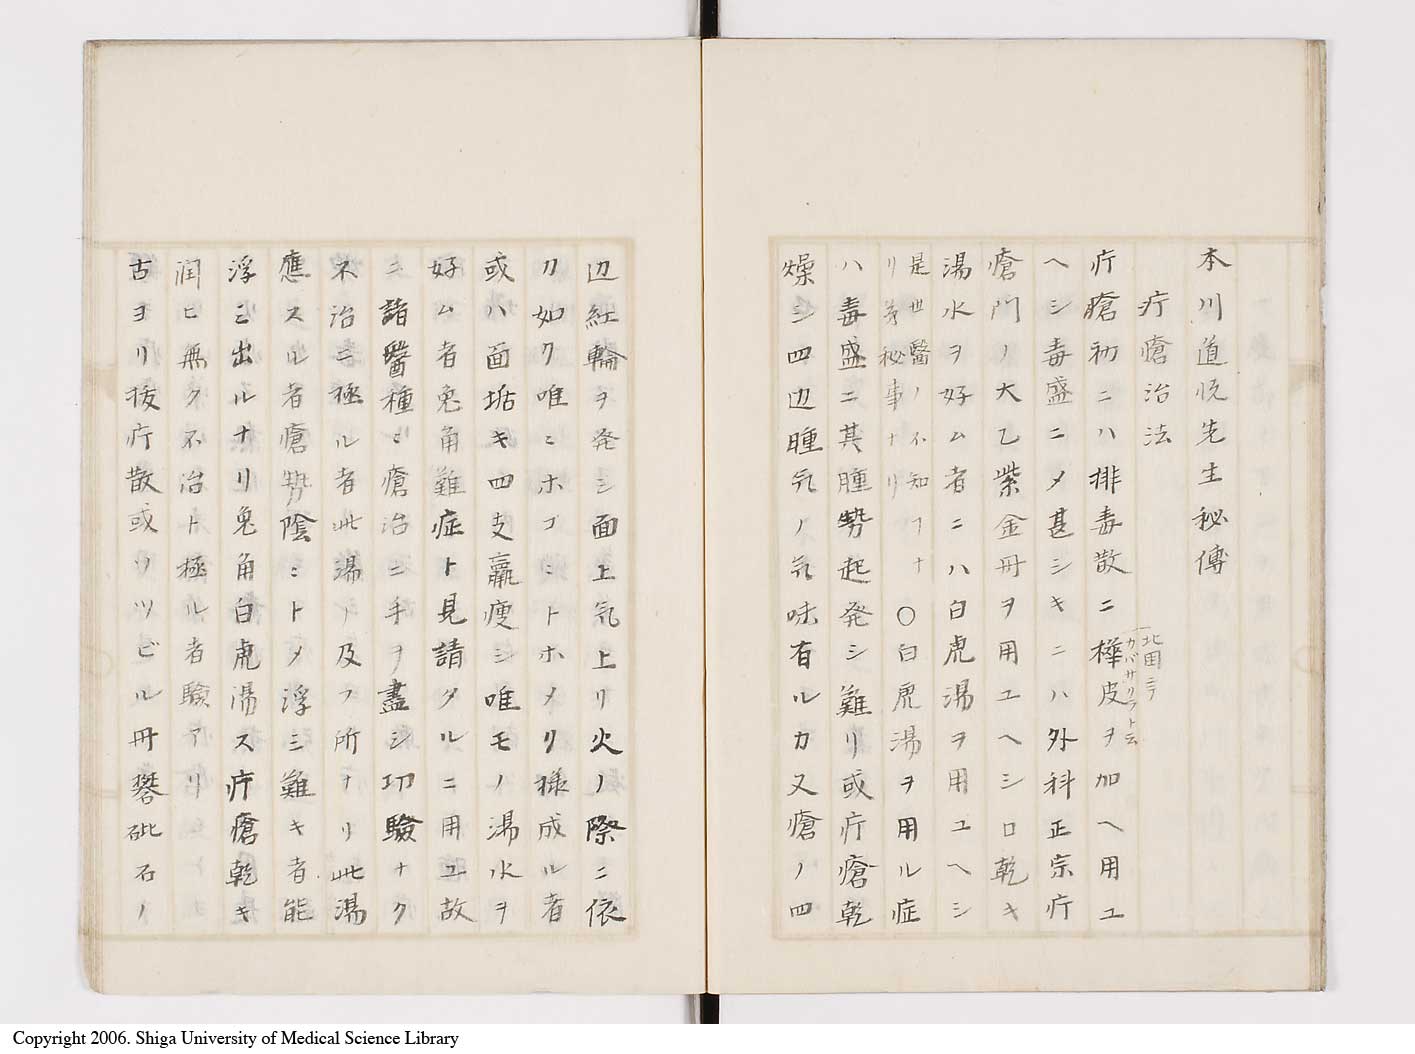 本川道悦先生秘傳
疔瘡治法
疔瘡初ニハ排毒散ニ樺皮ヲ加ヘ用ユ
北国ニテ
カバザクラト云
ヘシ毒盛ニメ甚シキニハ外科正宗疔
瘡門ノ大乙紫金丹ヲ用ユヘシロ乾キ
湯水ヲ好ム者ニハ白虎湯ヲ用ユヘシ
是世醫ノ不知ヿナ
リ第秘事ナリ
〇白虎湯ヲ用ル症
ハ毒盛ニ其腫勢起発シ難リ或疔瘡乾
燥シ四辺腫気ノ気味有ルカ又瘡ノ四
辺紅輪ヲ発シ面上気上リ火ノ際ニ依
カ如ク唯ミホゴミトホメク様成ル者
或ハ面垢キ四支羸痩シ唯モノ湯水ヲ
好ム者兎角難症ト見請タルニ用ユ故
ニ諸醫種ミ瘡治ニ手ヲ盡シ功験ナク
不治ニ極ル者此湯ノ及フ所ナリ此湯
應スル者瘡勢陰ミトメ浮ミ難キ者能
浮ミ出ルナリ兎角白虎湯ス疔瘡乾キ
潤ヒ無ク不治ト極ル者験アリ
古ヨリ抜疔散或ハツビル丹礬砒石ノ
Copyright 2006. Shiga University of Medical Science Library